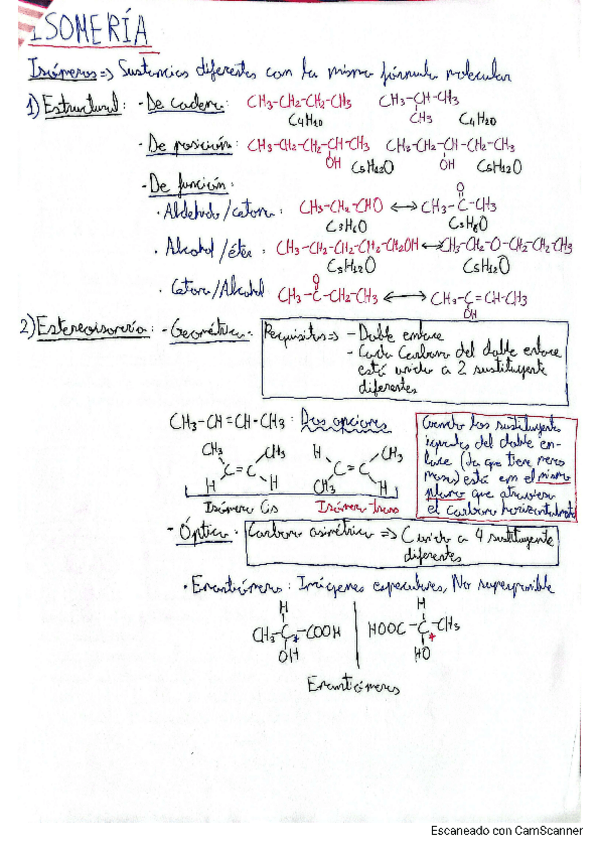 ISOMERÍA
Isómeros => Sustancias diferentes con la misma fórmula molecular
1) Estructural: - De cadena: CH3-CH2-CH2-CH3 CH3-CH-CH3
CH3
C4H10 C4H10
- De posición: CH3-CH2-CH2-CH-CH3 CH3-CH2-CH-CH2-CH3
OH OH
C5H12O C5H12O
- De función:
· Aldehído/cetona: CH3-CH2-CHO <-> CH3-C-CH3
O
C3H6O C3H6O
· Alcohol/éter: CH3-CH2-CH2-CH2-CH2OH <-> CH3-CH2-O-CH2-CH2-CH3
C5H12O C5H12O
· Cetona/Alcohol CH3-C-CH2-CH3 <-> CH3-C=CH-CH3
O OH
2) Estereoisomería: - Geométrica: Requisitos => - Doble enlace
- Cada Carbono del doble enlace
está unido a 2 sustituyente
diferentes
CH3-CH=CH-CH3: Dos opciones
CH3 CH3 H CH3
C=C C=C
H H CH3 H
Isómero Cis Isómero trans
Cuando los sustituyente
iguales del doble en-
lace (da que tiene menos
masa) está en el mismo
plano que atraviesa
el carbono horizontalmente
- Óptica: Carbono asimétrico => C unido a 4 sustituyente
diferentes
· Enantiómeros: Imágenes especulares, No superponible
H H
CH3-C*-COOH HOOC-C*-CH3
OH HO
Enantiómeros
Escaneado con CamScanner